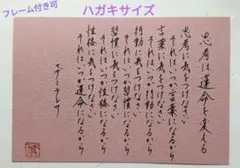 フレーム付き可
ハガキサイズ
思考は運命を変える
思考に気をつけなさい
それはいつか言葉になるから
言葉に気をつけなさい
それはいつか行動になるから
行動に気をつけなさい
それはいつか習慣になるから
習慣に気をつけなさい
それはいつか性格になるから
性格に気をつけなさい
それはいつか運命になるから
マザーテレサ